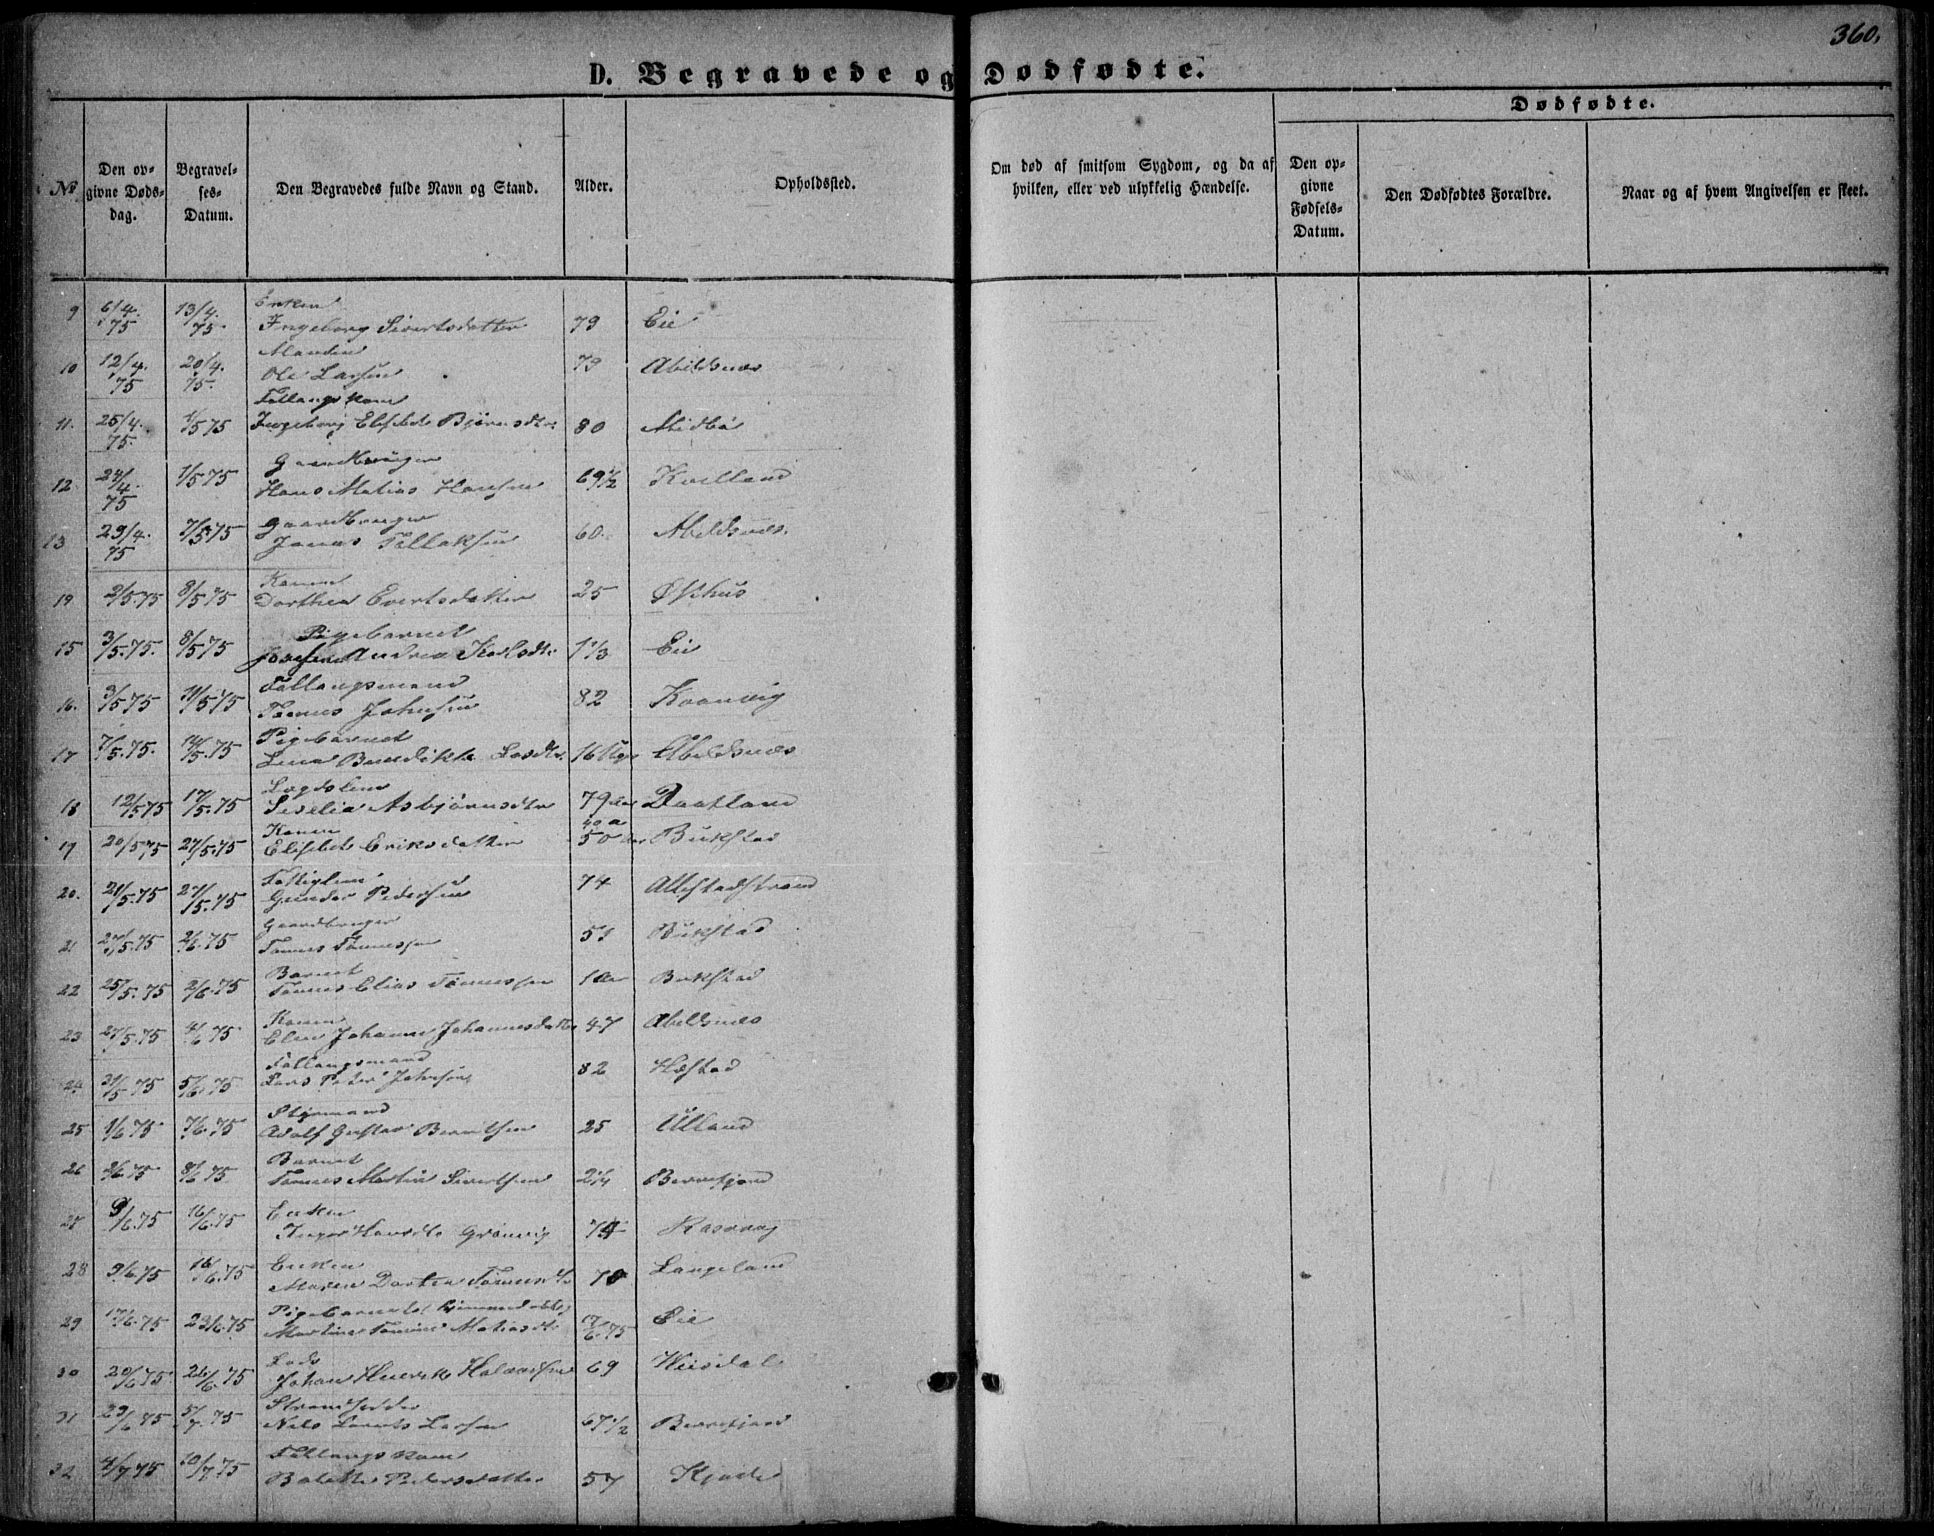 360.
D. Begravede og Dødfødte.
Dødfødte.
No
Den opgivne Dødsdag.
Begravelses-Datum.
Den Begravedes fulde Navn og Stand.
Alder.
Opholdssted.
Om død af smitsom Sygdom, og da af hvilken, eller ved ulykkelig Hændelse.
Den opgivne Fødsels-Datum.
Den Dødfødtes Forældre.
Naar og af hvem Angivelsen er skeet.
Enken
9 6/4. 75 13/4. 75. Ingeborg Sivertsdatter 79 Eie
Manden
10 12/4. 75 20/4. 75. Ole Larsen 79 Abildsnæs
Føllangskone
11. 25/4. 75. 1/5 75 Ingeborg Elisbet Bjørnsdtr 80 Midbø
Gaardbruger
12 24/4. 75 1/5 75 Hans Matias Hansen 69 1/2 Kvelland
Gaardbruger
13 29/4. 75 7/5 75 Jonas Tollaksen 60. Abeldsnæs.
Konen
19 2/5 75 8/5 75 Dorthea Evertsdatter 25 Øshus
Pigebarnet
15 3/5. 75. 8/5 75 Josefine Andrea Karlsdtr 1 1/3 Eie
Føllangsmand
16. 3/5 75 11/5 75 Tønnes Johnsen 82 Kvanvig
Pigebarnet
17 7/5. 75. 14/5. 75 Lena Bendikte 16 Abeldsnæs
Lægdslem
18 12/5 75 17/5. 75 Seselia Asbjørnsdtr 79 aar Daatland
Konen 40 a
17 20/5 75 27/5. 75 Elisbet Eriksdatter 50 aar Bukstad
Fattiglem
20. 21/5. 75 27/5. 75 Gunder Pedersen 74 Allestadstrand
Gaardbruger
21 27/5. 75 2/6. 75 Tønnes Tønnessen 51 Bukstad
Barnet
22 25/5. 75 2/6. 75 Tønnes Elias Tønnessen 1 aar Bukstad
Konen
23 27/5. 75 4/6 75 Elen Johanne Johannesdatter 47 Abeldsnæs
Føllangsmand
24 31/5 75 5/6. 75 Lars Peter Johnsen 82 Hæstad
Styrmand
25 1/6 75 7/6. 75 Adolf Gustav Berntsen 25 Ulland
Barnet
26 2/6 75 8/6 75 Tønnes Martin Sivertsen 2 1/4 Berrefjord
Enken
27 9/6. 75 16/6. 75 Inger Hansdtr Grønvig 74 Rasvaag
Enken
28 9/6 75 16/6. 75 Maren Dortea Tønnesdtr 70 Langeland
Pigebarnet
29 17/6. 75 23/6. 75 Martine Tomine Matiasdtr 17/6. 75 Eie
Lods
30 20/6 75 26/6. 75 Johan Henrik Halvorsen 69 Weisdal
Strandsidder
31 29/6 75 5/7. 75 Nils Lorents Larsen 67 1/2 Berrefjord
Føllangskone
32 4/7 75 10/7. 75 Bolette Pedersdatter 57 Kjøde